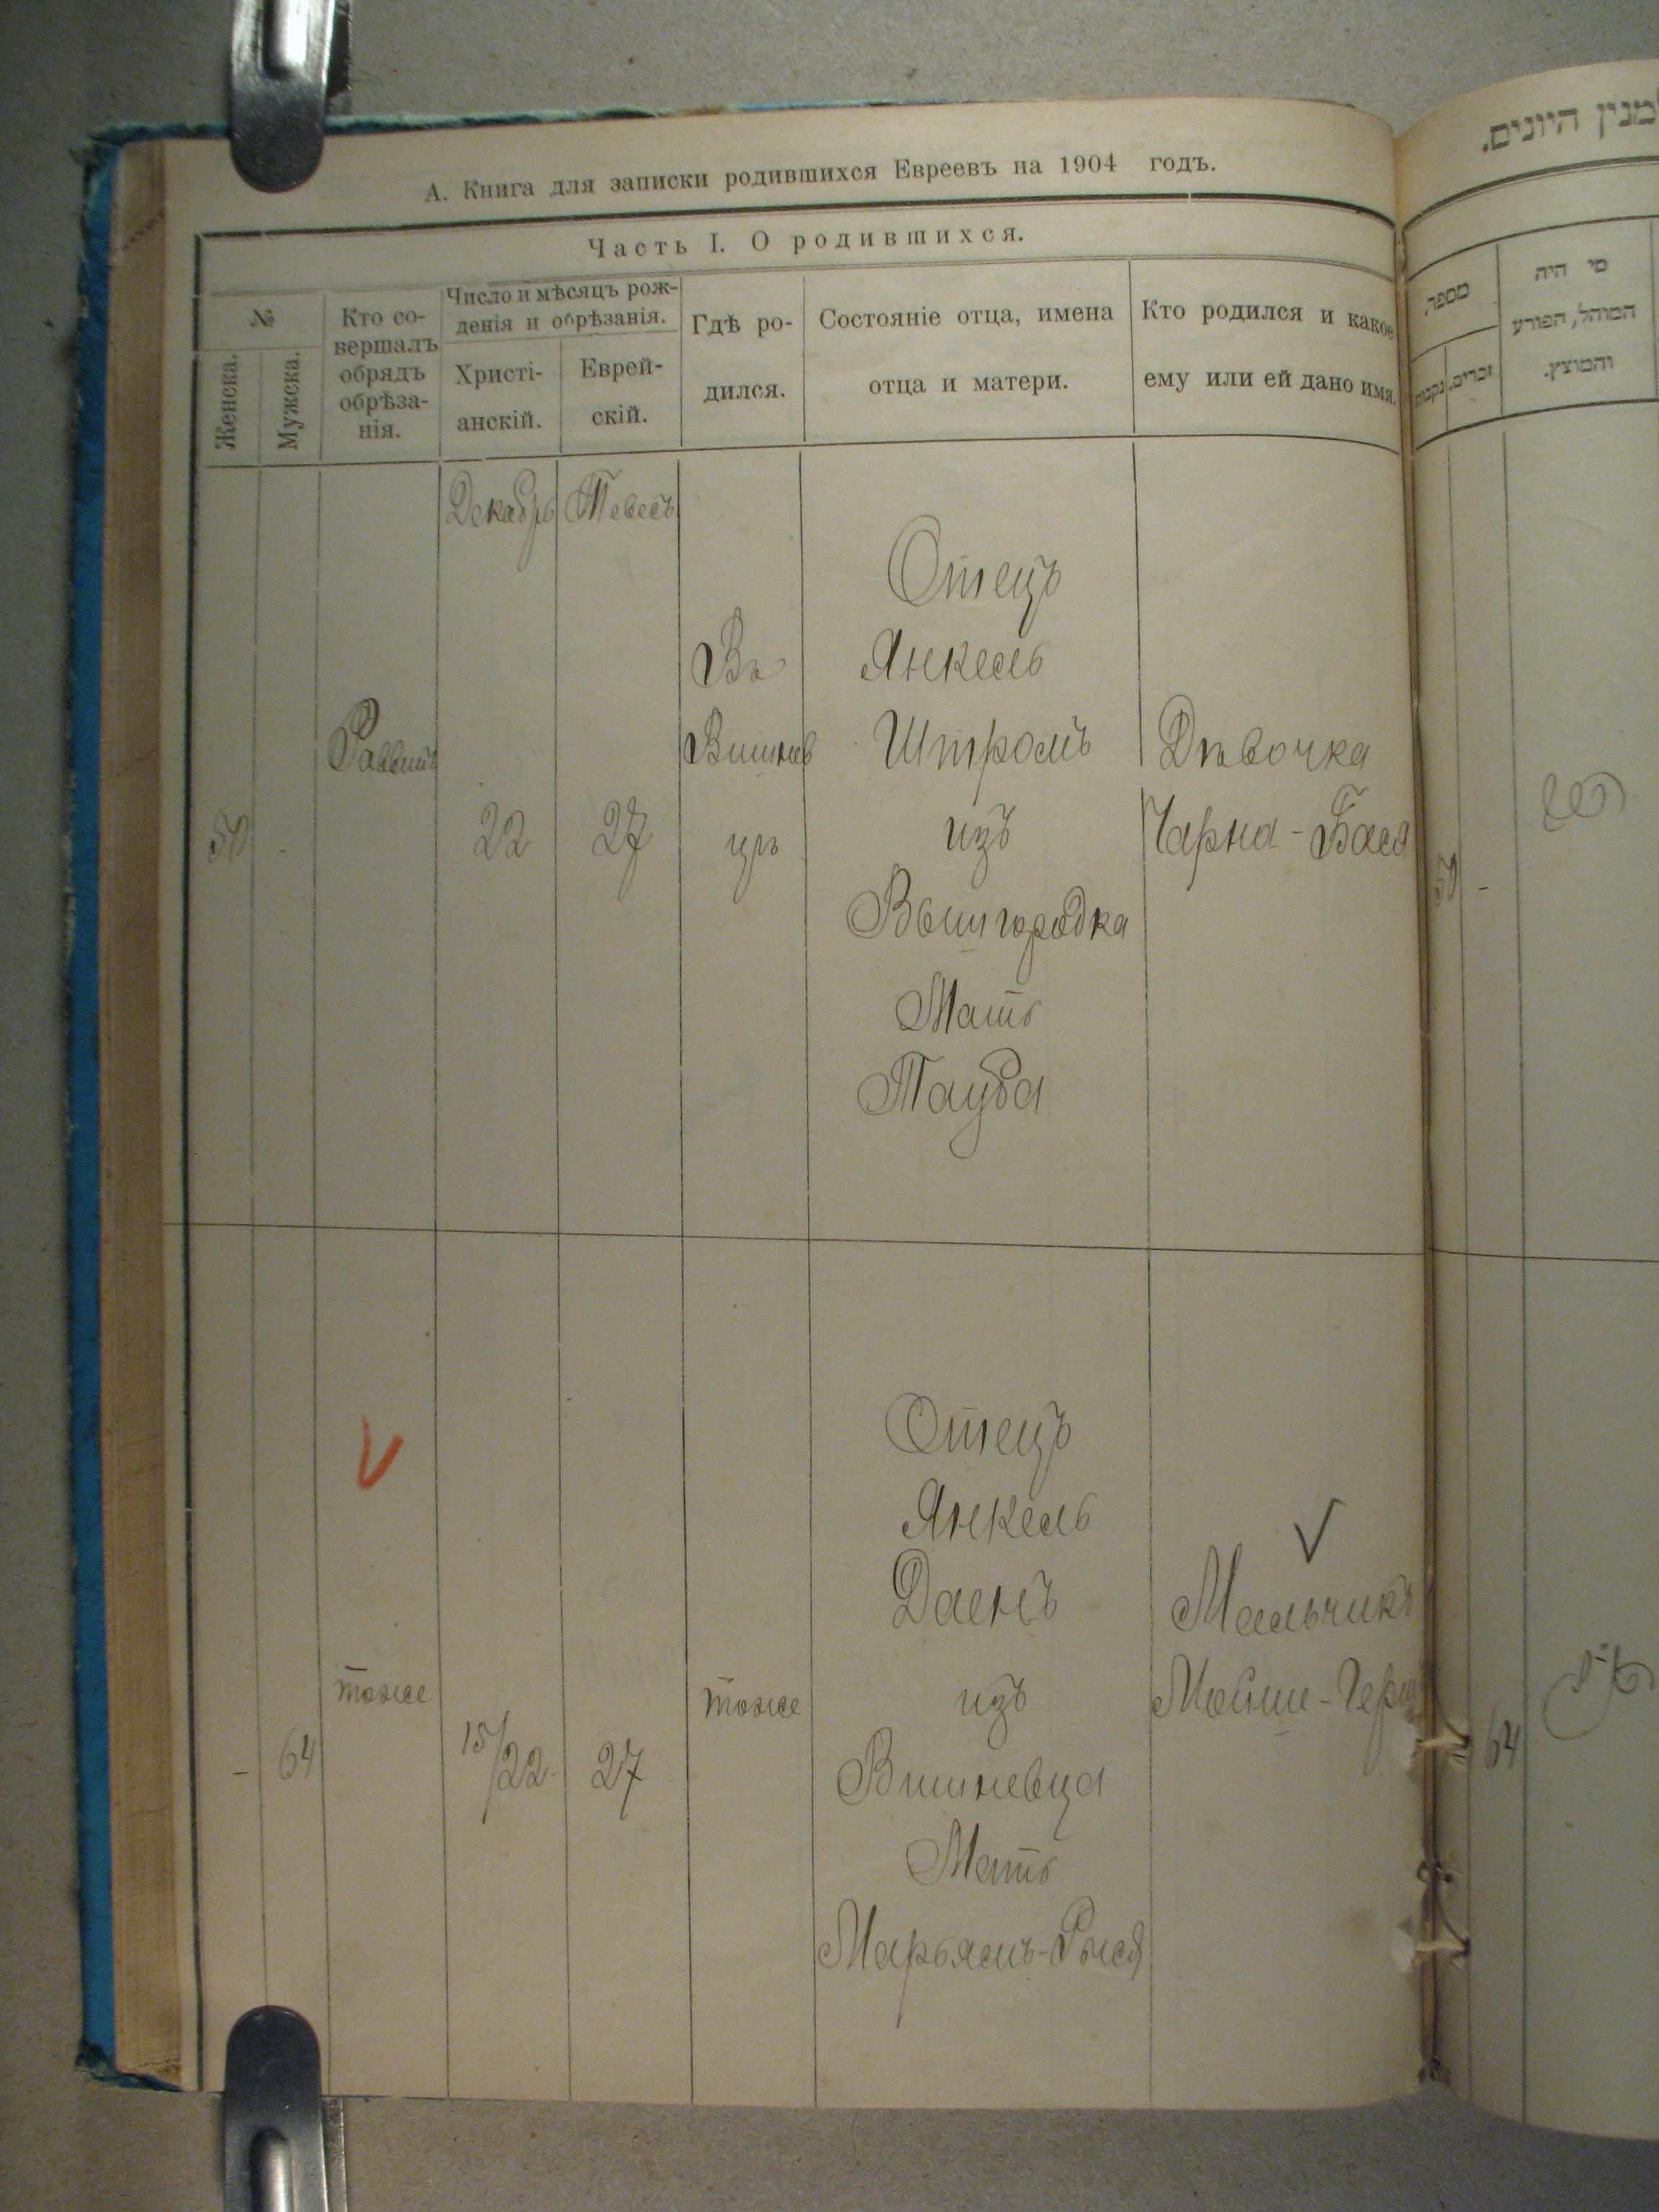 А. Книга для записки родившихся Евреевъ на 1904 годъ.
Часть I. О родившихся.
№
Женска.
Мужска.
Кто со-
вершалъ
обрядъ
обрѣза-
нія.
Число и мѣсяцъ рож-
денія и обрѣзанія.
Христі-
анскій.
Еврей-
скій.
Гдѣ ро-
дился.
Состояніе отца, имена
отца и матери.
Кто родился и какое
ему или ей дано имя.
Декабрь
Тевесъ
50
-
Раввинъ
22
27
Въ
Вишнев
цѣ
Отецъ
Янкель
Штромъ
изъ
Вышгородка
Мать
Тауба
Дѣвочка
Чарна-Бася
-
64
тоже
15/22
27
тоже
Отецъ
Янкель
Даенъ
изъ
Вишневца
Мать
Марьямъ-Рыся
Мальчикъ
Мойше-Герш
למנין היונים.
מספר.
נקבות
זכרים.
מי היה
המוהל, הפורע
והמוצץ.
50 -
64